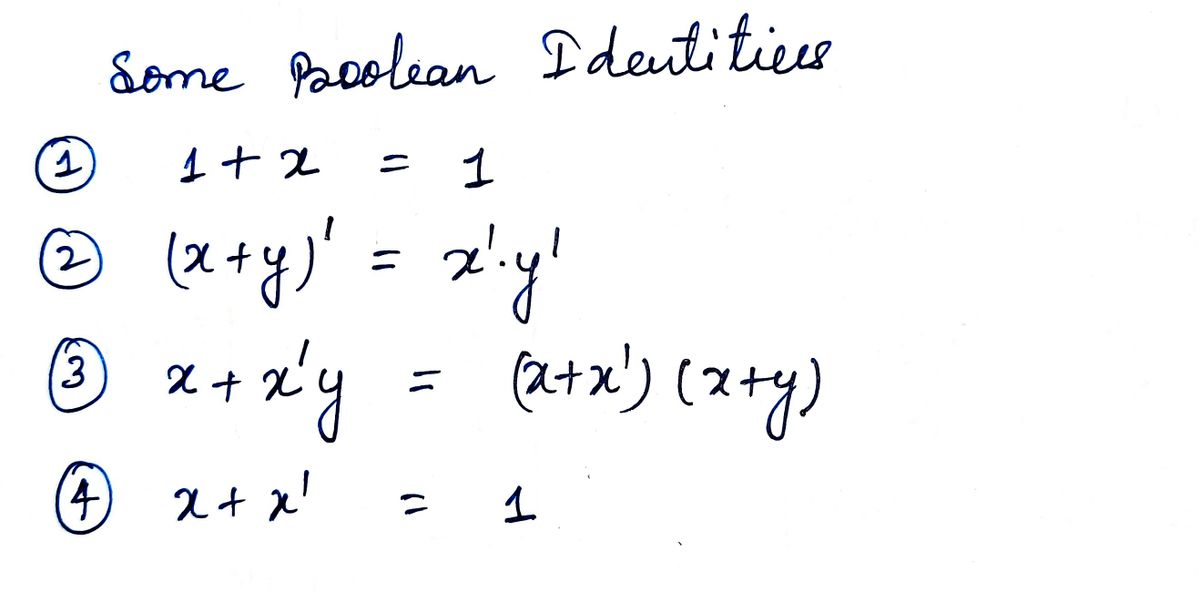 Some Boolean Identities
① 1 + x = 1
② (x+y)' = x'.y'
③ x + x'y = (x+x') (x+y)
④ x + x' = 1